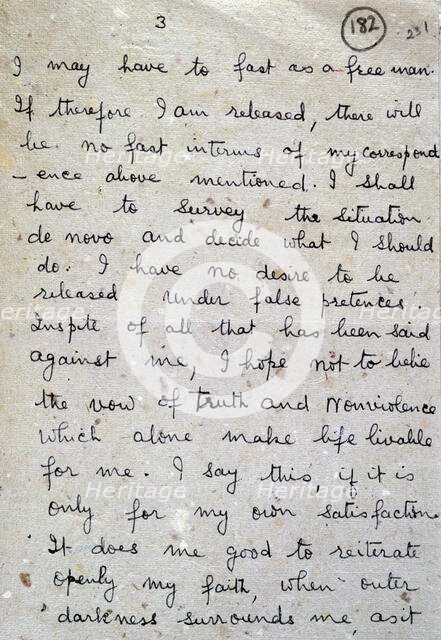 3
182
231
I may have to fast as a free man.
If therefore I am released, there will
be no fast interms of my correspond
-ence above mentioned. I shall
have to survey the situation
de novo and decide what I should
do. I have no desire to be
released under false pretences.
Inspite of all that has been said
against me, I hope not to belie
the vow of truth and Nonviolence
which alone make life livable
for me. I say this, if it is
only for my own satisfaction.
It does me good to reiterate
openly my faith, when outer
darkness surrounds me, as it
Heritage
Heritage
Heritage
Heritage
Heritage
Heritage